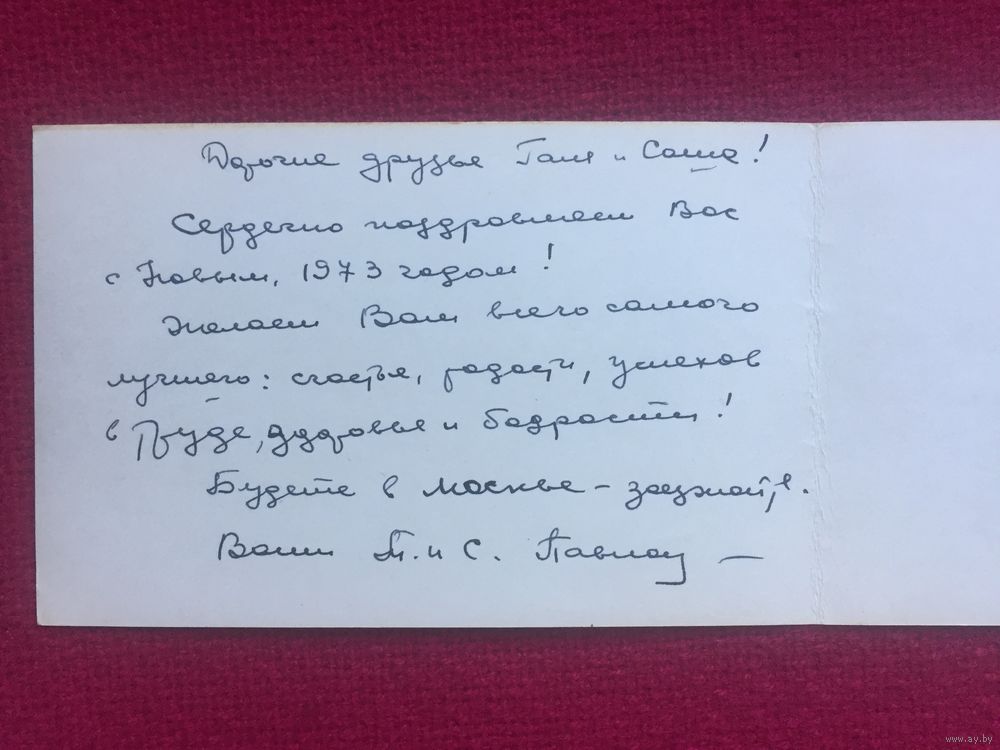 Дорогие друзья Галя и Саша!
Сердечно поздравляем Вас
с Новым, 1973 годом!
Желаем Вам всего самого
лучшего: счастья, радости, успехов
в труде, здоровья и бодрости!
Будете в Москве – заезжайте.
Ваши Т. и С.
www.ay.by